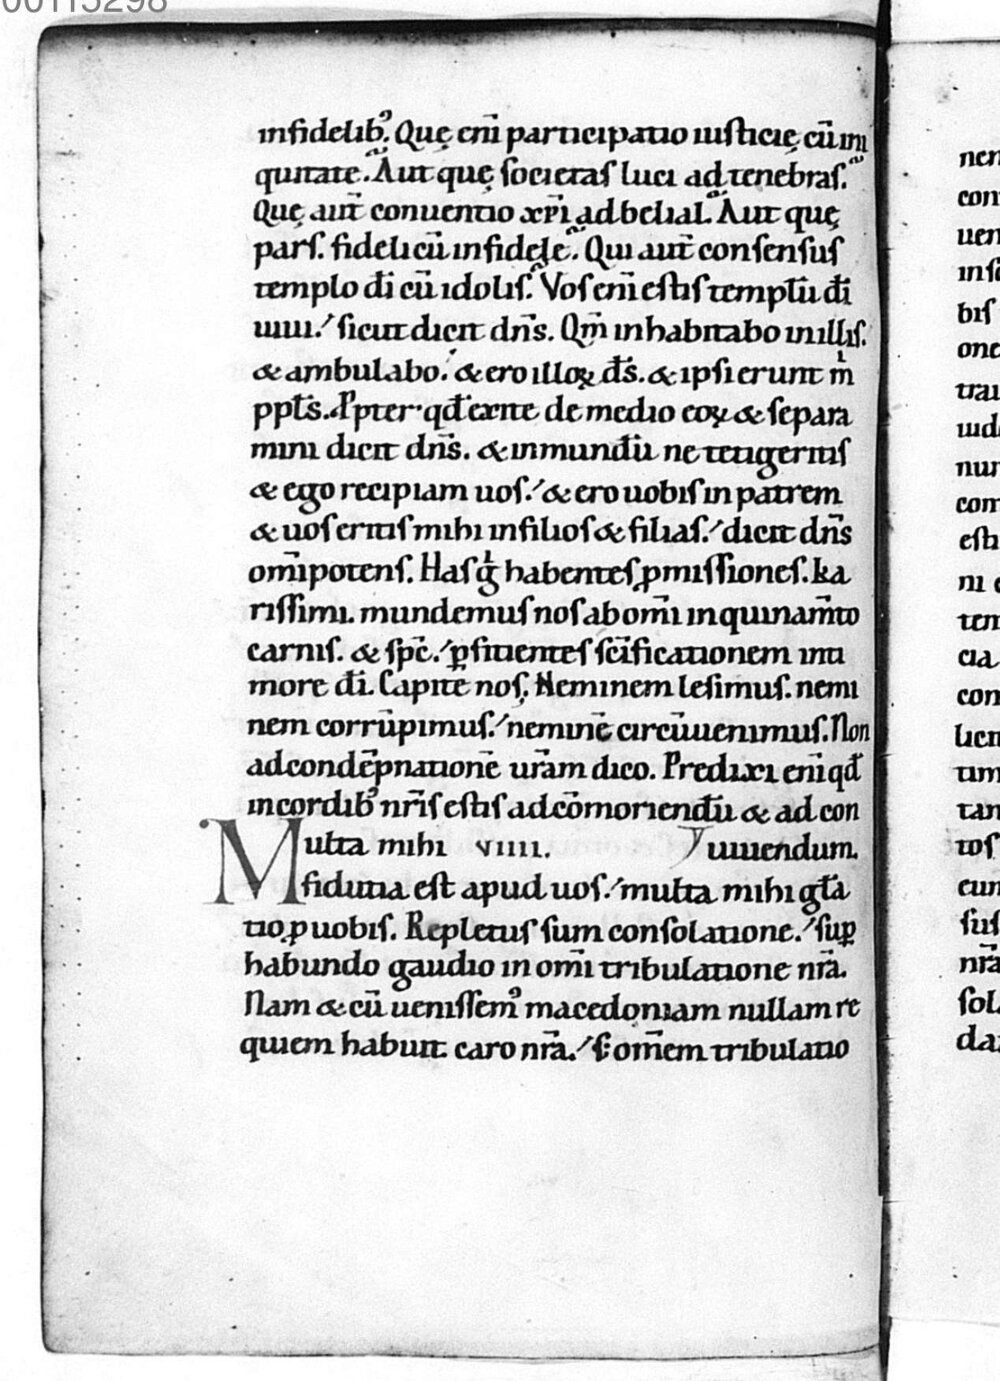 00115298
infidelib᷒. Quę eni̅ participatio iusticię cu̅ ini
quitate. Aut quę societas luci ad tenebras.
Quę aut̅ conuentio xp̅i ad belial. Aut quę
pars. fideli cu̅ infidele. Qui aut̅ consensus
templo đi cu̅ idolis. Vos eni̅ estis templu̅ đi
uiui. sicut dicit dn̅s. Qm̅ inhabitabo in illis.
& ambulabo. & ero illoꝝ đs. & ipsi erunt m̅
ppl̅s. Ꝓpter qđ exite de medio eoꝝ & separa
mini dicit dn̅s. & inmundu̅ ne tetigeritis
& ego recipiam uos. & ero uobis in patrem
& uos eritis mihi in filios & filias. dicit dn̅s
om̅ipotens. Has g̍ habentes ꝓmissiones. ka
rissimi. mundemus nos ab om̅i inquinam̅to
carnis. & sp̅c. ꝑficientes sc̅ificationem in ti
more đi. Capite nos. Neminem lesimus. nemi
nem corru̅pimus. nemine̅ circu̅uenimus. Non
ad conde̅pnatione̅ ur̅am dico. Predixi eni̅ qđ
in cordib᷒ nr̅is estis ad co̅moriendu̅ & ad con
Multa mihi VIIII. uiuendum.
fiducia est apud uos. multa mihi gl̅a
tio ꝓ uobis. Repletus sum consolatione. suꝑ
habundo gaudio in om̅i tribulatione nr̅a.
Nam & cu̅ uenissem᷒ macedoniam nullam re
quiem habuit caro nr̅a. s; om̅em tribulatio